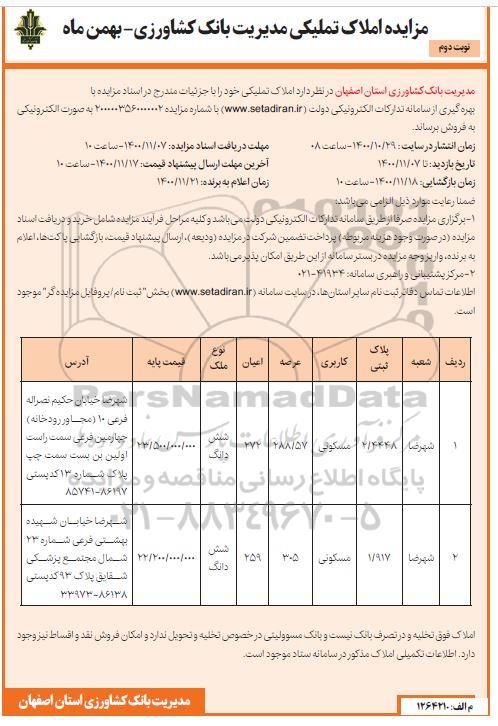 مزایده املاک تملیکی مدیریت بانک کشاورزی- بهمن ماه
نوبت دوم
مدیریت بانک کشاورزی استان اصفهان در نظر دارد املاک تملیکی خود را با جزئیات مندرج در اسناد مزایده با
بهره گیری از سامانه تدارکات الکترونیکی دولت (www.setadiran.ir) با شماره مزایده ۲۰۰۰۰۰۳۵۶۰۰۰۰۰۰۲ به صورت الکترونیکی
به فروش برساند.
زمان انتشار در سایت: ۱۴۰۰/۱۰/۲۹-ساعت ۰۸ مهلت دریافت اسناد مزایده: ۱۴۰۰/۱۱/۰۷-ساعت ۱۰
تاریخ بازدید: تا ۱۴۰۰/۱۱/۰۷ آخرین مهلت ارسال پیشنهاد قیمت: ۱۴۰۰/۱۱/۱۷-ساعت ۱۰
زمان بازگشایی: ۱۴۰۰/۱۱/۱۸-ساعت ۱۰ زمان اعلام به برنده: ۱۴۰۰/۱۱/۲۱
ضمنا رعایت موارد ذیل الزامی می‌باشد:
۱-برگزاری مزایده صرفا از طریق سامانه تدارکات الکترونیکی دولت می‌باشد و کلیه مراحل فرآیند مزایده شامل خرید و دریافت اسناد
مزایده (در صورت وجود هزینه مربوطه) پرداخت تضمین شرکت در مزایده (ودیعه)، ارسال پیشنهاد قیمت، بازگشایی پاکت‌ها، اعلام
به برنده، واریز وجه مزایده در بستر سامانه از این طریق امکان پذیر می‌باشد.
۲-مرکز پشتیبانی و راهبری سامانه: ۴۱۹۳۴-۰۲۱
اطلاعات تماس دفاتر ثبت نام سایر استان‌ها، در سایت سامانه (www.setadiran.ir) بخش"ثبت نام /پروفایل مزایده گر" موجود
است.
ردیف شعبه پلاک ثبتی کاربری عرصه اعیان نوع ملک قیمت پایه آدرس
۱ شهرضا ۲/۴۴۴۸ مسکونی ۲۸۸/۵۷ ۲۷۲ شش دانگ ۲۳/۵۰۰/۰۰۰/۰۰۰ شهرضا خیابان حکیم نصراله
فرعی ۱۰ (مجاور رودخانه)
چهارمین فرعی سمت راست
اولین بن بست سمت چپ
پلاک شماره ۱۳ کدپستی
۸۵۷۴۱-۸۶۱۹۷
۲ شهرضا ۱/۹۱۷ مسکونی ۳۰۵ ۲۵۹ شش دانگ ۲۲/۲۰۰/۰۰۰/۰۰۰ شهرضا خیابان شهیده
بهشتی فرعی شماره ۲۳
شمال مجتمع پزشکی
شقایق پلاک ۹۳ کدپستی
۳۳۹۷۳-۸۶۱۳۸
ParsNamadData
پایگاه اطلاع رسانی مناقصه و مزایده
۰۲۱-۸۸۳۴۹۶۷۰-۵
املاک فوق تخلیه و در تصرف بانک نیست و بانک مسوولیتی در خصوص تخلیه و تحویل ندارد و امکان فروش نقد و اقساط نیز وجود
دارد. اطلاعات تکمیلی املاک مذکور در سامانه ستاد موجود است.
م الف: ۱۲۶۴۲۱۰ مدیریت بانک کشاورزی استان اصفهان